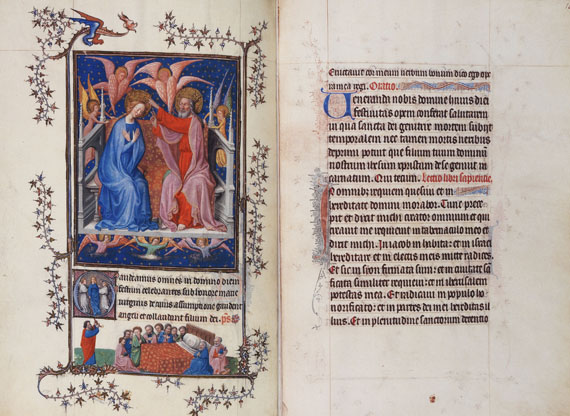 audeamus omnes in domino diem
festum celebrantes sub honore marie
virginis de cuius assumptione gaudent
angeli et collaudant filium dei. ps
Eructauit cor meum uerbum bonum dico ego ope
ra mea regi. Oratio.
Ueneranda nobis domine huius diei
festiuitas opem conferat salutarem
in qua sancta dei genitrix mortem subiit
temporalem nec tamen mortis nexibus
deprimi potuit que filium tuum dominum
nostrum de se genuit in
carnatum. Qui tecum. Lectio libri sapientie.
In omnibus requiem quesiui et in
hereditate domini morabor. Tunc prece
pit et dixit michi creator omnium et qui
creauit me requieuit in tabernaculo meo et
dixit michi. In iacob inhabita et in israel
hereditare et in electis meis mitte radices.
Et sic in syon firmata sum et in ciuitate sa
tificata similiter requieui et in iherusalem
potestas mea. Et radicaui in populo ho
norificato et in partes dei mei hereditas il
lius. Et in plenitudine sanctorum detentio